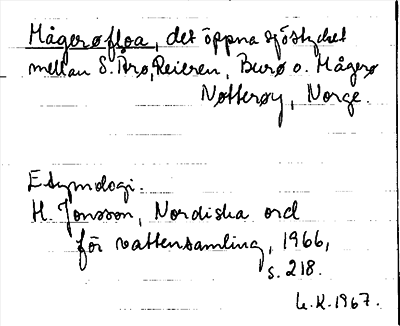 Mågerøfloa, det öppna sjöstycket
mellan S. Årø, Reieren, Burø o. Mågerø
Nøtterøy, Norge.
Etymologi:
H. Jonsson, Nordiska ord
för vattensamling, 1966,
s. 218.
L.K. 1967.